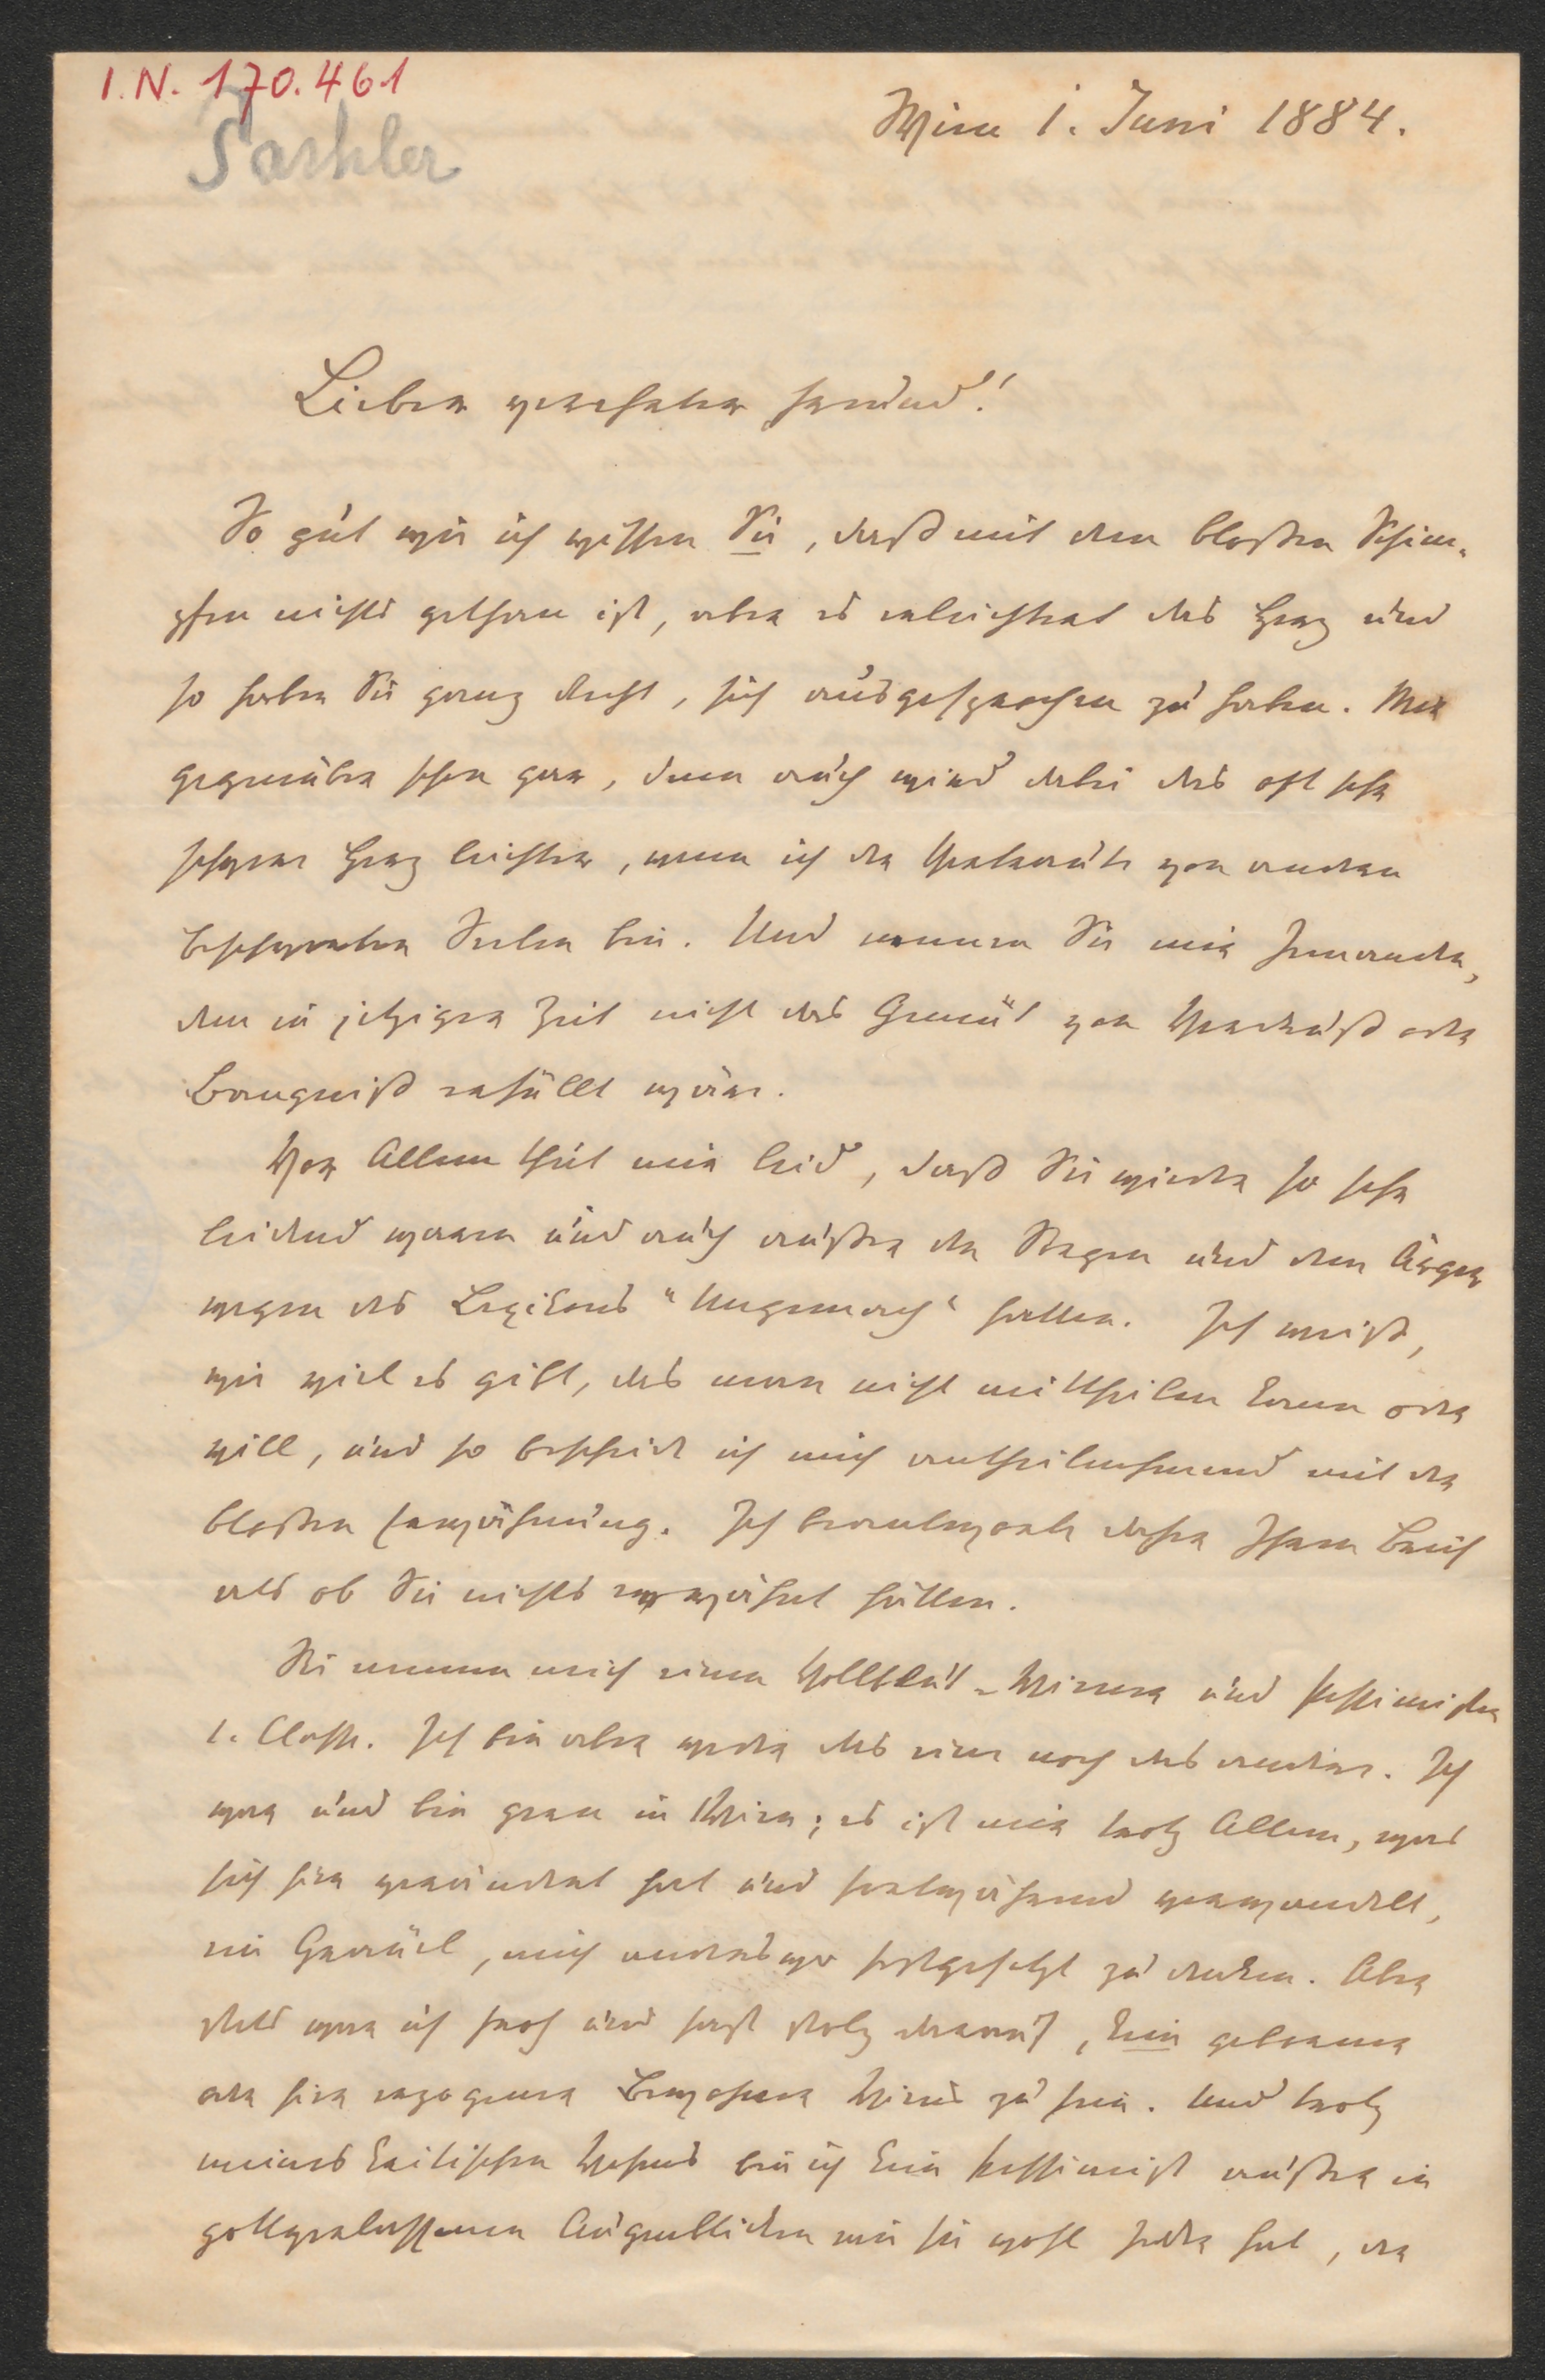 I.N. 170.461
Paschler
Wien 1. Juni 1884.
Lieber verehrter Freund!
So gut wie ich wissen Sie, daß mit dem bloßen Schim-
pfen nichts gethan ist, aber es erleichtert das Herz und
so haben Sie ganz Recht, sich ausgesprochen zu haben. Mir
gegenüber schon gar, denn auch wird dabei das oft sehr
schwere Herz leichter, wenn ich der Vertraute von andern
beschwerten Seelen bin. Und nennen Sie mir Jemanden,
dem in jetziger Zeit nicht das Gemüt von Verdruß oder
Bangniß erfüllt wäre.
Vor Allem thut mir leid, daß Sie wieder so sehr
leidend waren und auch außer den Sorgen und dem Ärger
wegen des Lexikons "Ungemach" hatten. Ich weiß,
wie viel es gibt, das man nicht mittheilen kann oder
will, und so bescheide ich mich antheilnehmend mit der
bloßen Erwähnung. Ich beantworte daher Ihren Brief
als ob Sie nichts erwähnt hätten.
Sie nennen mich einen Vollblut-Wiener und Pessimisten
1. Classe. Ich bin aber weder das eine noch das andere. Ich
war und bin gern in Wien; es ist mir trotz Allem, was
sich hier verändert hat und fortwährend verwandelt,
ein Gräuel, mich anderswo festgesetzt zu denken. Aber
stets war ich froh und fast stolz darauf, kein geborener
oder hier erzogener Bewohner Wiens zu sein. Und trotz
meines kritischen Wesens bin ich kein Pessimist außer in
gottverlassenen Augenblicken wie sie wohl Jeder hat, der